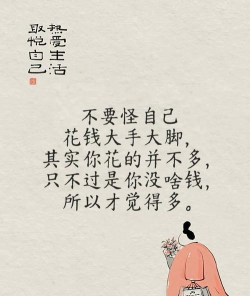 热爱生活
取悦自己
不要怪自己
花钱大手大脚，
其实你花的并不多，
只不过是你没啥钱，
所以才觉得多。